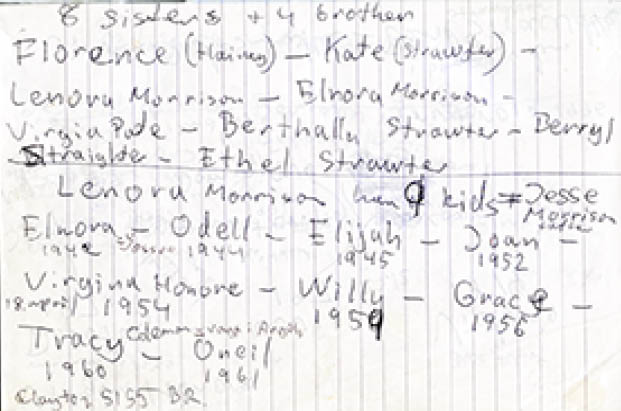 8 sisters + 4 brother
Florence (Haines) – Kate (Strawter) –
Lenora Morrison – Elnora Morrison –
Virgia Pate – Berthally Strawter – Derryl
Straighte – Ethel Strawter
Lenora Morrison han 9 kids = Jesse
Morrison
Elnora – Odell – Elijah – Joan –
1942 1944 1945 1952
Virgina Honore – Willy – Grace –
18. April 1954 1959 1956
Tracy – Oneil
1960 1961
Clayton